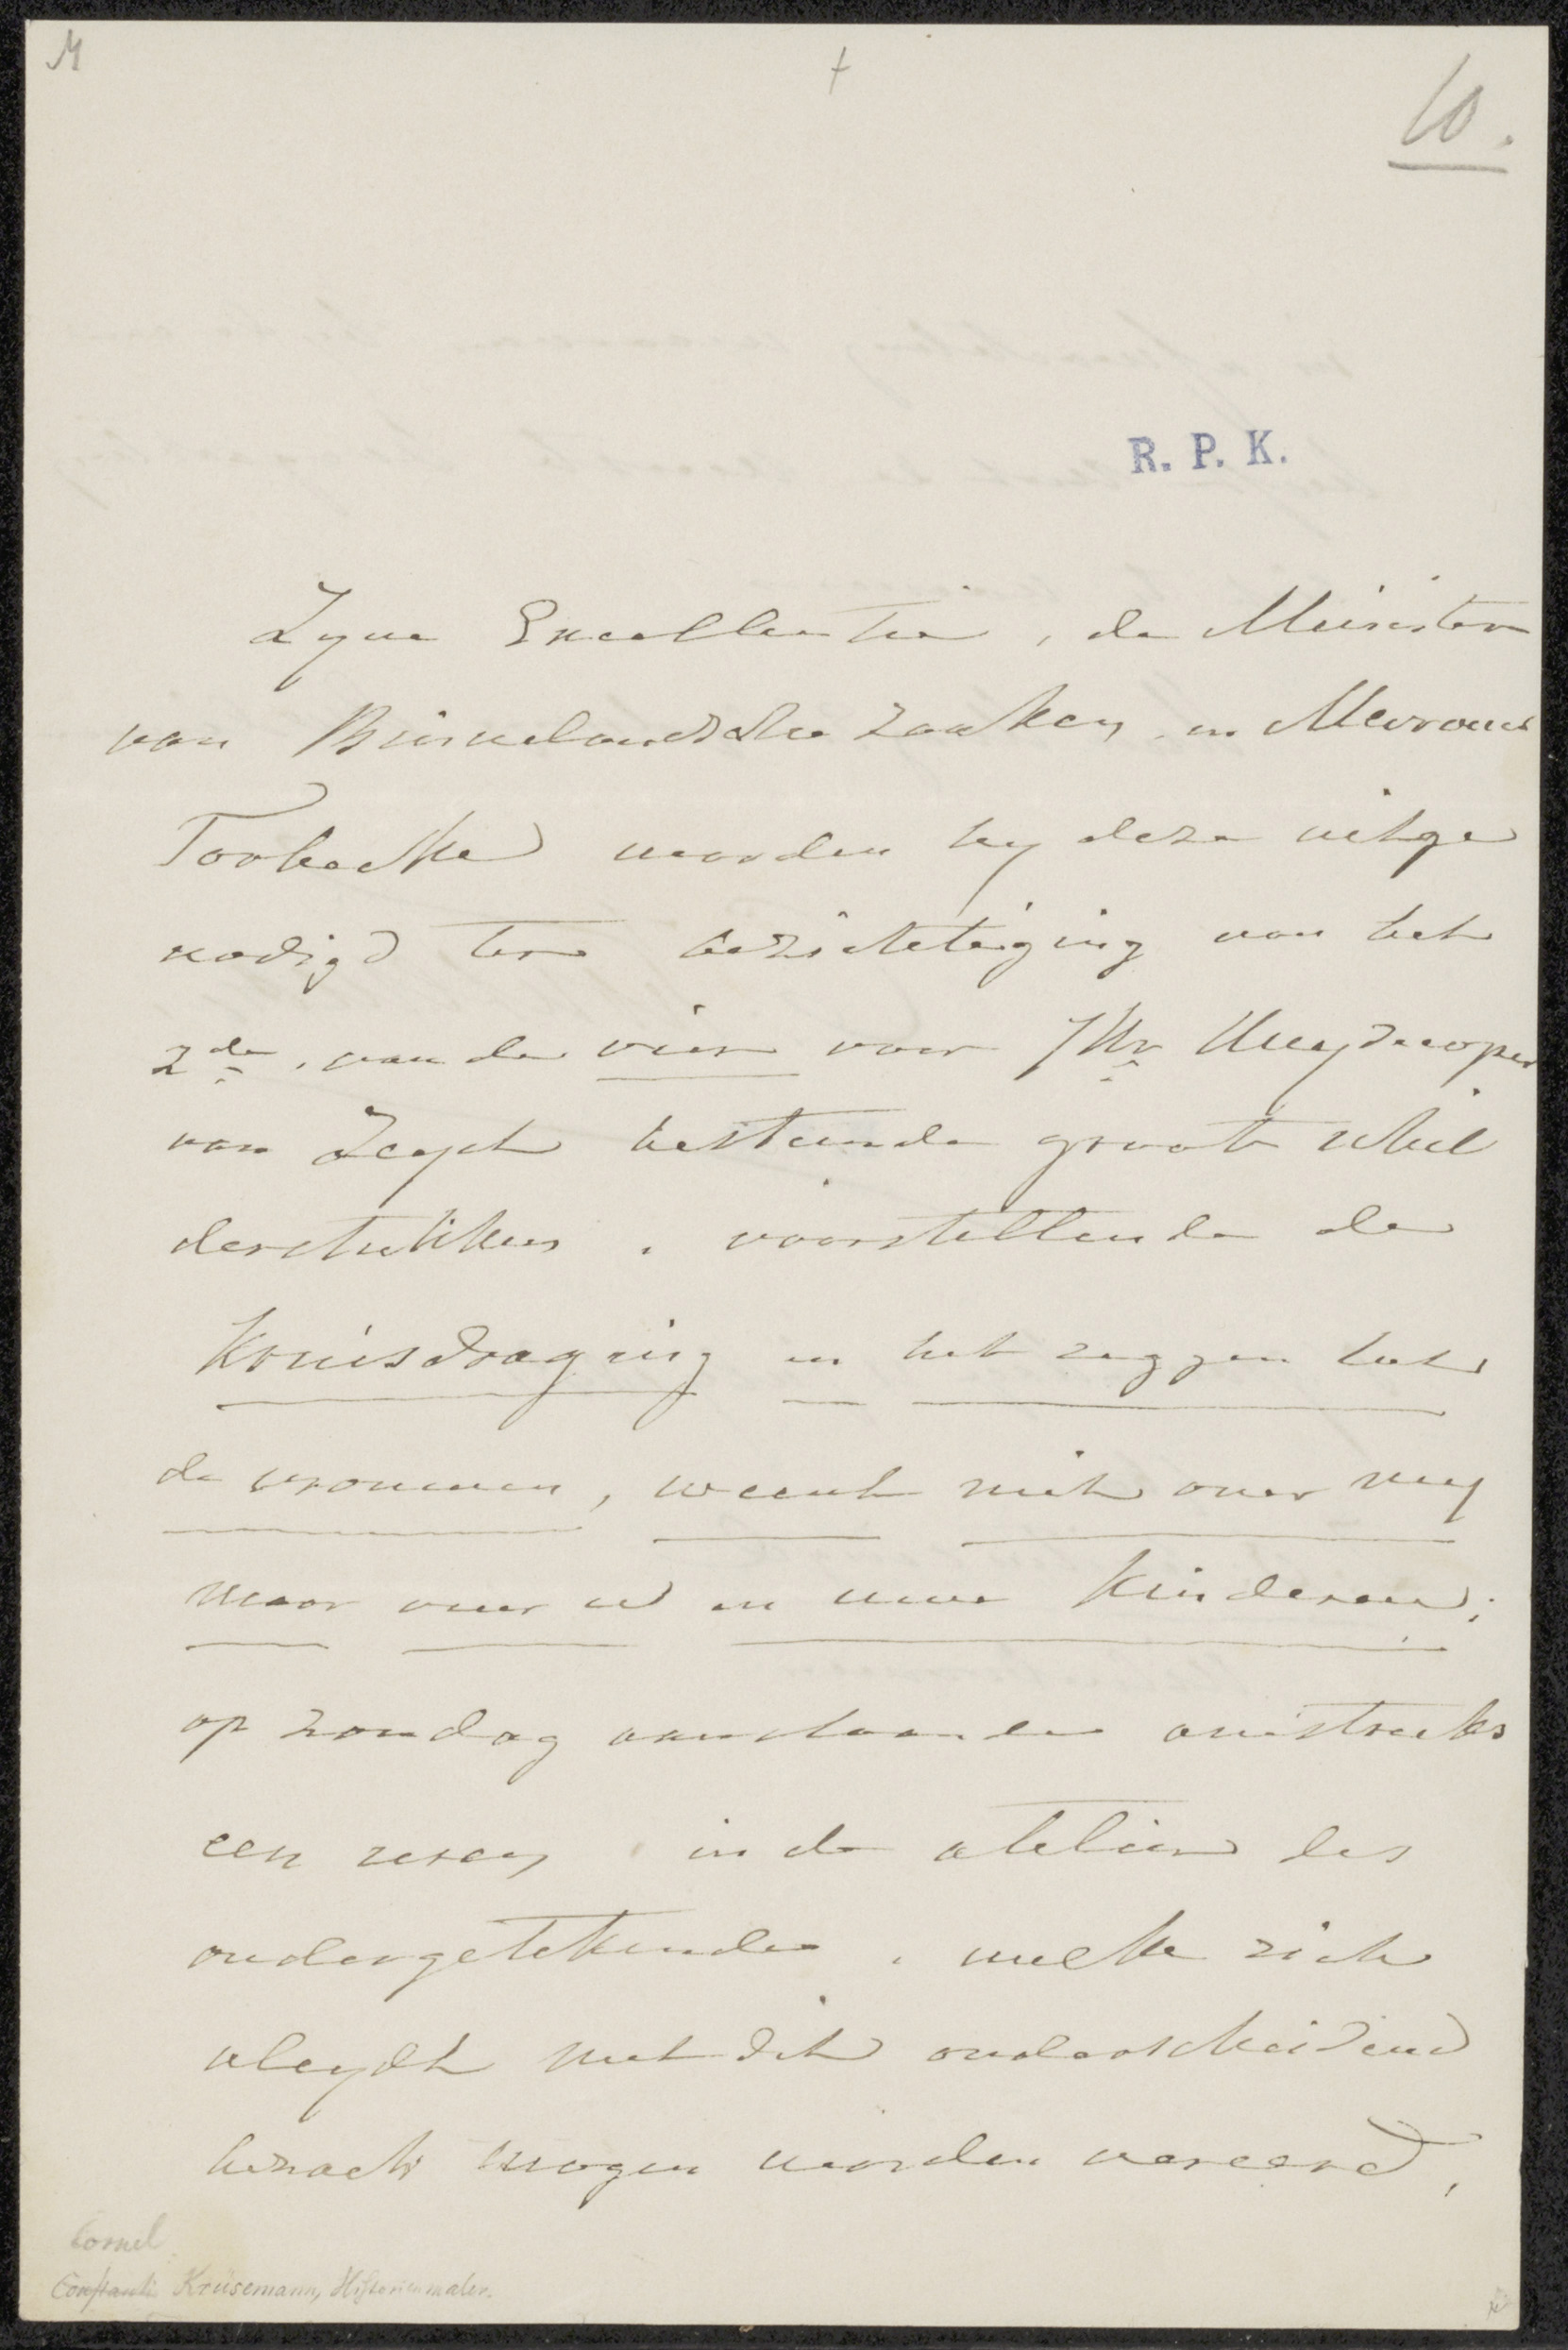 M
+
10.
R. P. K.
Zyne Excellentie, de Minister
van Binnelandsche zaaken, en Mevrouw
Torbecke worden by deze uitge
nodigd ter bezichtiging van het
2de. van de vier voor JHr Huydecoper
van Zeyst bestemde groote schil
derstukken, voorstellende de
Kruisdraging en het zeggen tot
de vrouwen, weent niet over my
maar over u en uwe kinderen;
op zondag aanstaande omstreeks
een uren in de atelier des
ondergetekenden, welke zich
vleydt met dit onderscheidend
bezoek mogen worden vereerd,
Cornel.
Constantin Krüsemann, Historienmaler.